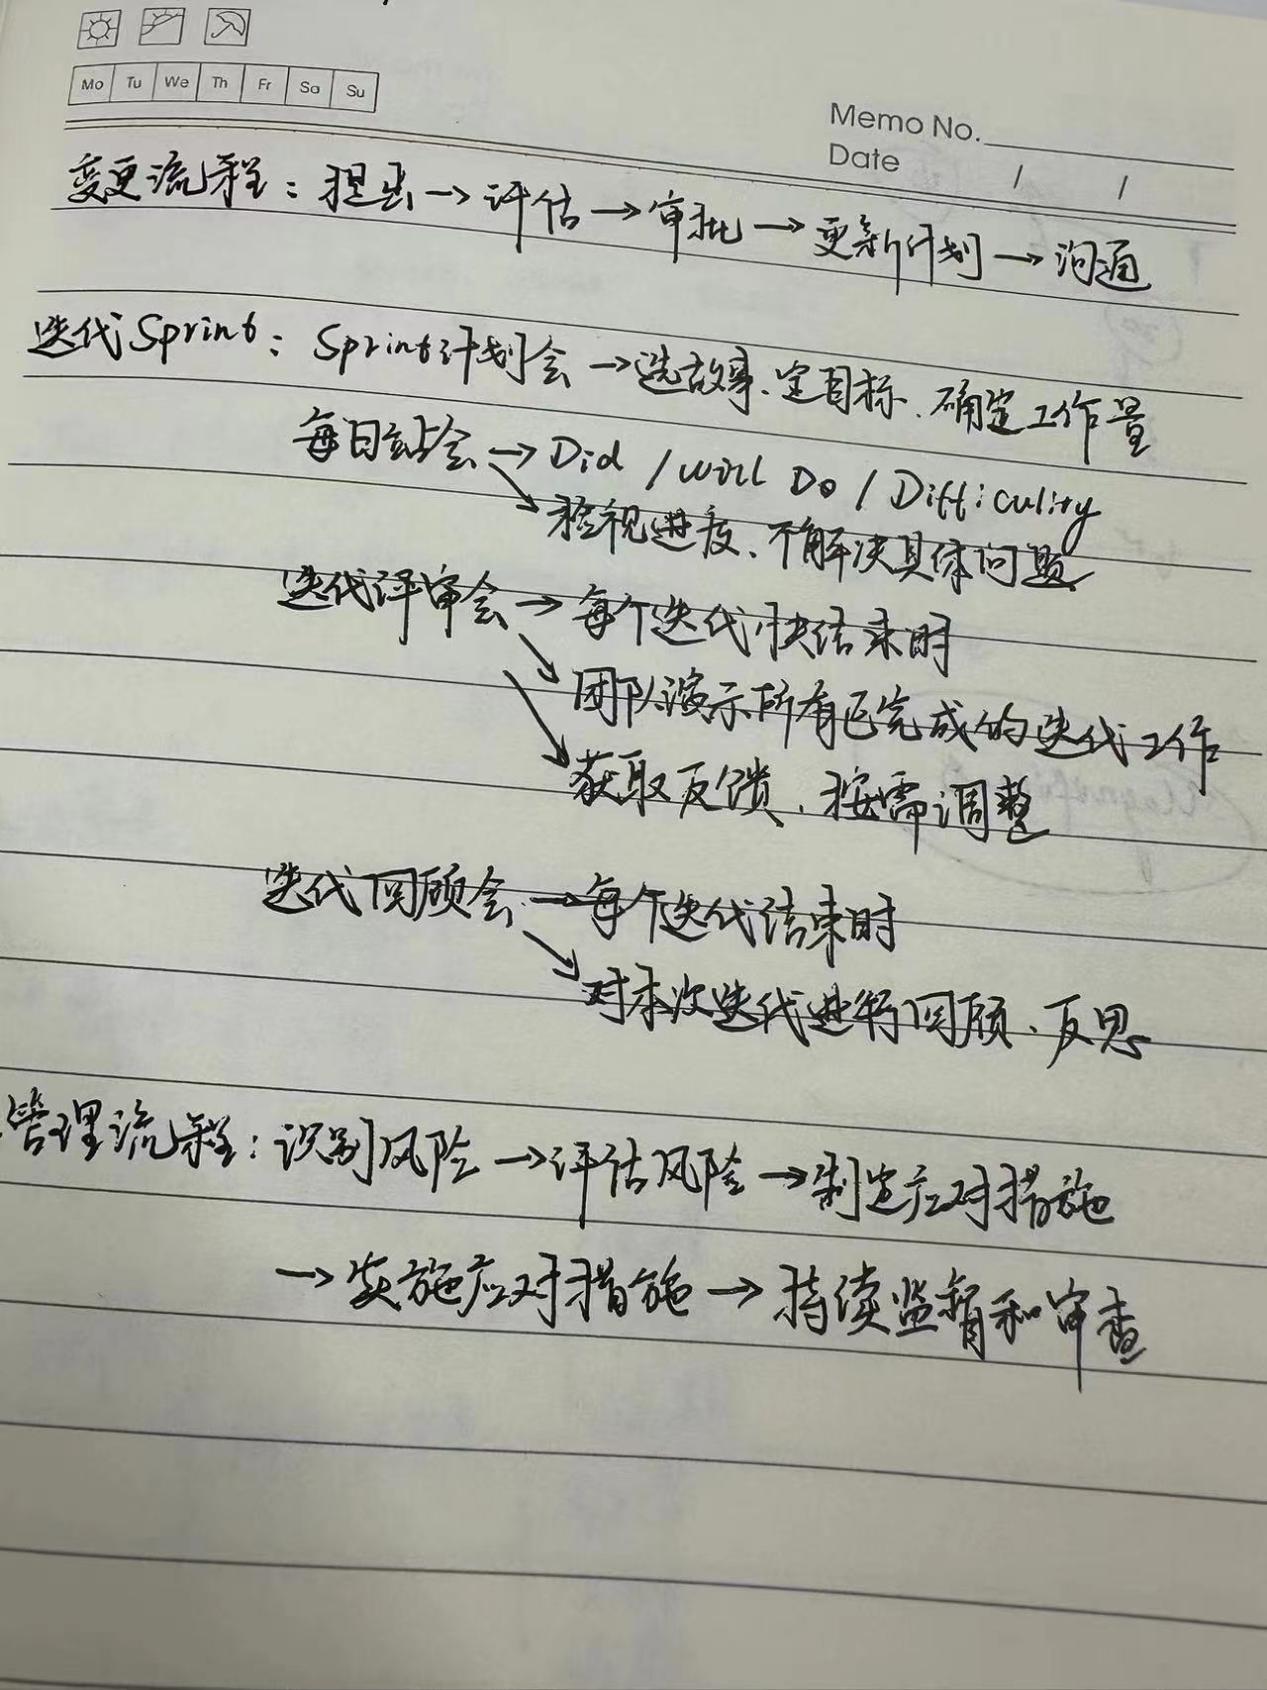 Mo Tu We Th Fr Sa Su
Memo No.
Date / /
变更流程：提出→评估→审批→更新计划→沟通
迭代Sprint：Sprint计划会→选故事、定目标、确定工作量
每日站会→Did / Will Do / Difficulity
→检视进度、不解决具体问题
迭代评审会→每个迭代快结束时
→团队演示所有已完成的迭代工作
→获取反馈、按需调整
迭代回顾会→每个迭代结束时
→对本次迭代进行回顾、反思
管理流程：识别风险→评估风险→制定应对措施
→实施应对措施→持续监督和审查